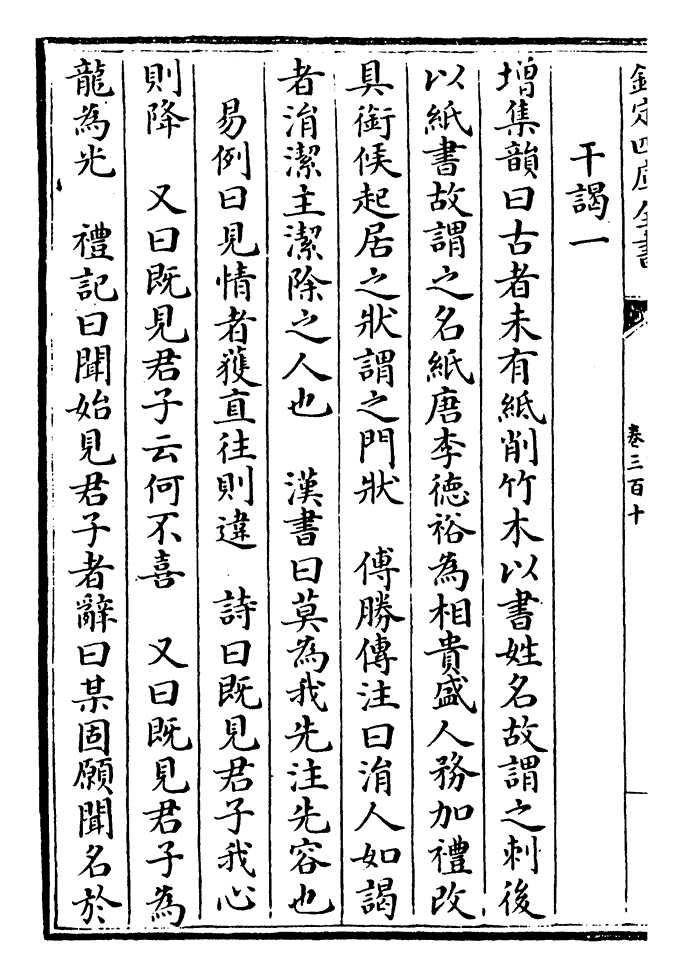 欽定四庫全書
卷三百十
干謁一
增集韻曰古者未有紙削竹木以書姓名故謂之刺後
以紙書故謂之名紙唐李德裕為相貴盛人務加禮改
具銜候起居之狀謂之門狀　傅勝傳注曰涓人如謁
者涓潔主潔除之人也　漢書曰莫為我先注先容也
易例曰見情者獲直往則違　詩曰既見君子我心
則降　又曰既見君子云何不喜　又曰既見君子為
龍為光　禮記曰聞始見君子者辭曰某固願聞名於